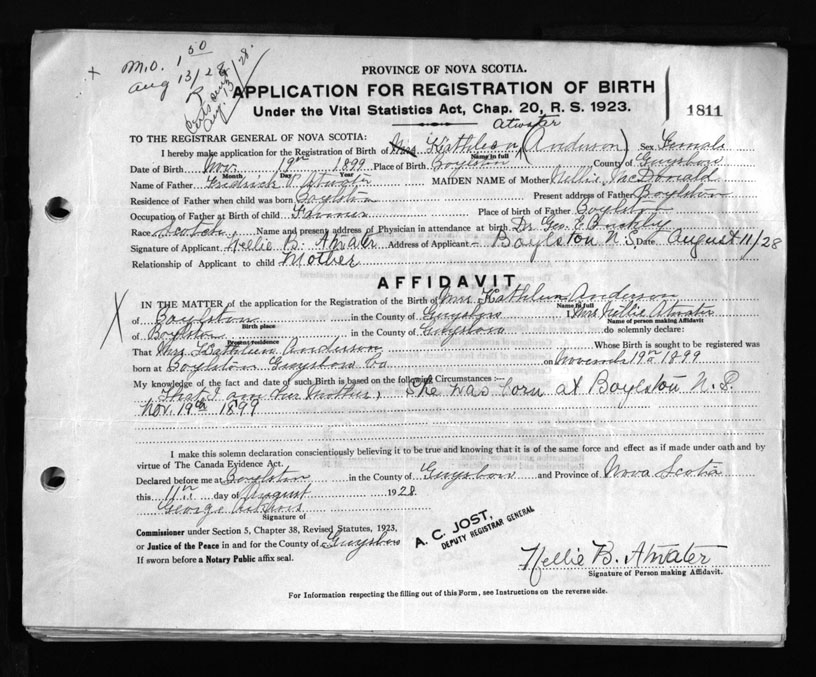 M.O. 1 50
Aug 13/28
Aug. 13/28.
PROVINCE OF NOVA SCOTIA.
APPLICATION FOR REGISTRATION OF BIRTH
Under the Vital Statistics Act, Chap. 20, R. S. 1923.
1811
Atwater
TO THE REGISTRAR GENERAL OF NOVA SCOTIA:
I hereby make application for the Registration of Birth of Mrs Kathleen (Anderson) Sex Female
Name in full
Date of Birth Nov. 19th 1899 Place of Birth Boylston County of Guysboro
Month Day Year
Name of Father Fredrick P. Atwater MAIDEN NAME of Mother Nellie McDonald
Residence of Father when child was born Boylston Present address of Father Boylston
Occupation of Father at Birth of child Farmer Place of birth of Father Boylston
Race Scotch, Name and present address of Physician in attendance at birth Dr. Geo. E. Buckley
Signature of Applicant Nellie B. Atwater Address of Applicant- Boylston N.S. Date August 11/28
Relationship of Applicant to child Mother
AFFIDAVIT
X
IN THE MATTER of the application for the Registration of the Birth of Mrs Kathleen Anderson
Name in full
of Boylston in the County of Guysboro I, Mrs Nellie Atwater
Birth place Name of person making Affidavit
of Boylston in the County of Guysboro do solemnly declare:
Present residence
That Mrs Kathleen Anderson Whose Birth is sought to be registered was
born at Boylston Guysboro Co on November 19th 1899
My knowledge of the fact and date of such Birth is based on the following Circumstances :—
That I am her mother, She was born at Boylston N.S.
Nov. 19th 1899
I make this solemn declaration conscientiously believing it to be true and knowing that it is of the same force and effect as if made under oath and by
virtue of The Canada Evidence Act.
Declared before me at Boylston in the County of Guysboro and Province of Nova Scotia
this 11th day of August 1928.
George
Signature of
Commissioner under Section 5, Chapter 38, Revised Statutes, 1923,
or Justice of the Peace in and for the County of Guysboro
If sworn before a Notary Public affix seal.
A. C. JOST,
DEPUTY REGISTRAR GENERAL
Nellie B. Atwater
Signature of Person making Affidavit.
For Information respecting the filling out of this Form, see Instructions on the reverse side.